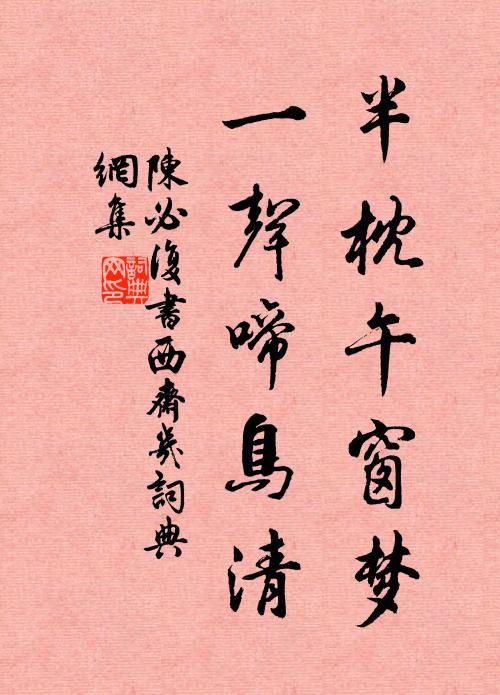 半枕午窗梦
一聲啼鳥清
陳必復書西齋㡬詞典
網集
詞典
网印